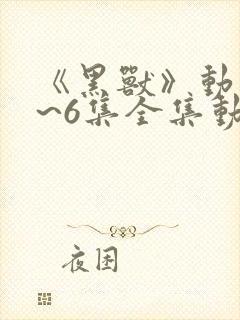 《黑獸》動
~6集全集動
夜困